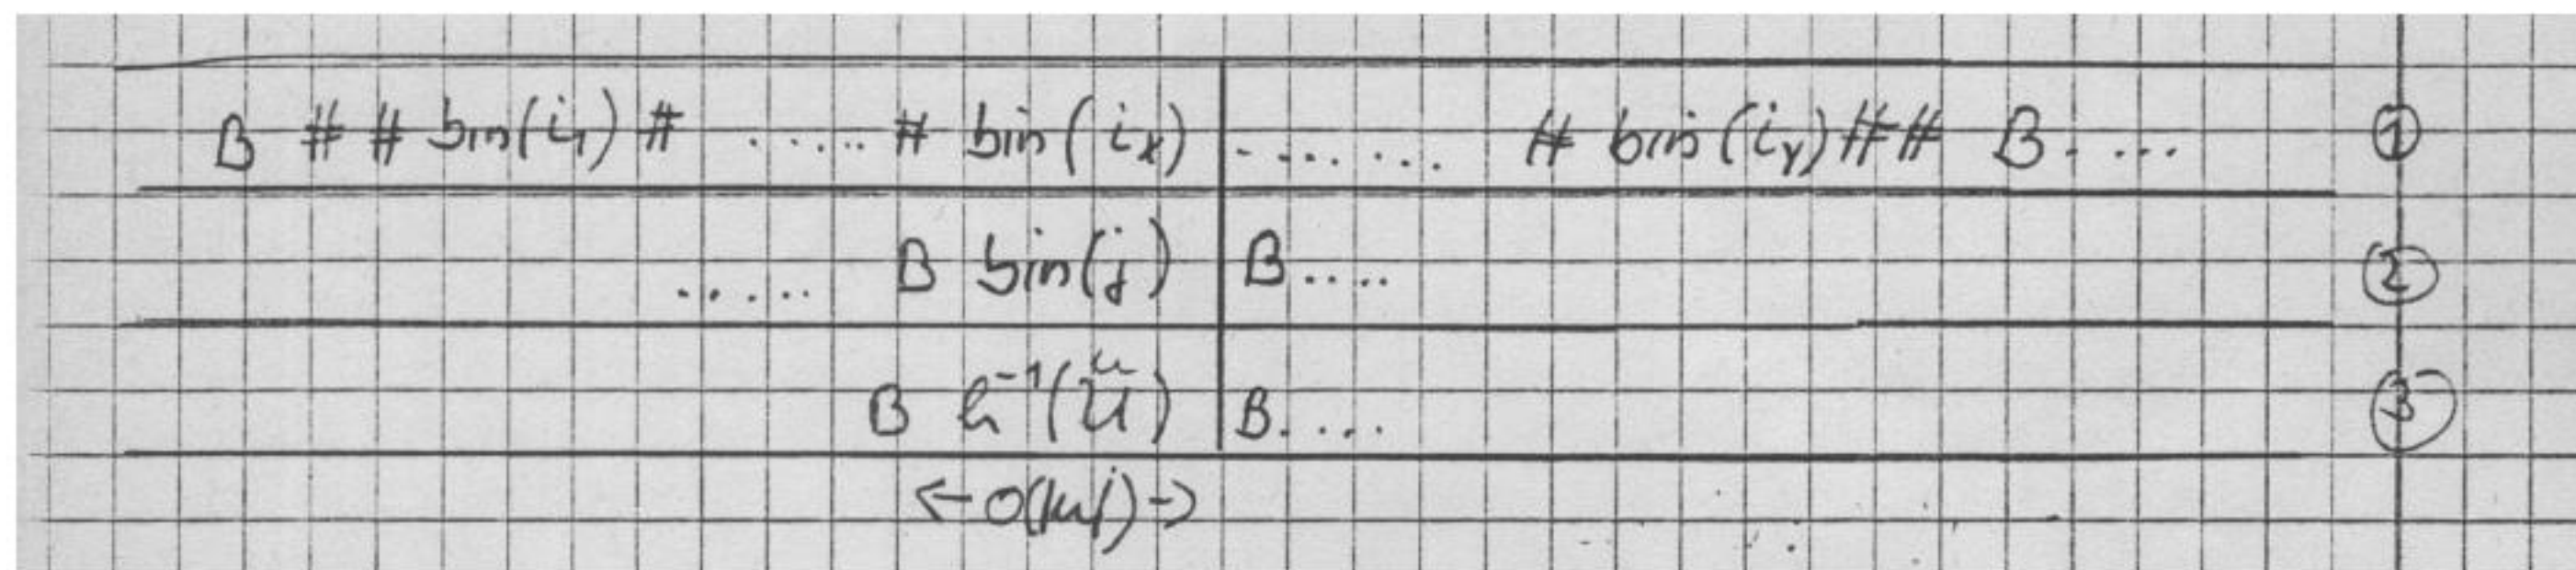 B # # bin(i₁) # ..... # bin(iₓ) ....... # bin(iᵧ)## B..... ①
..... B bin(j) B.... ②
B h⁻¹(ũ) B.... ③
<- O(|u|) ->